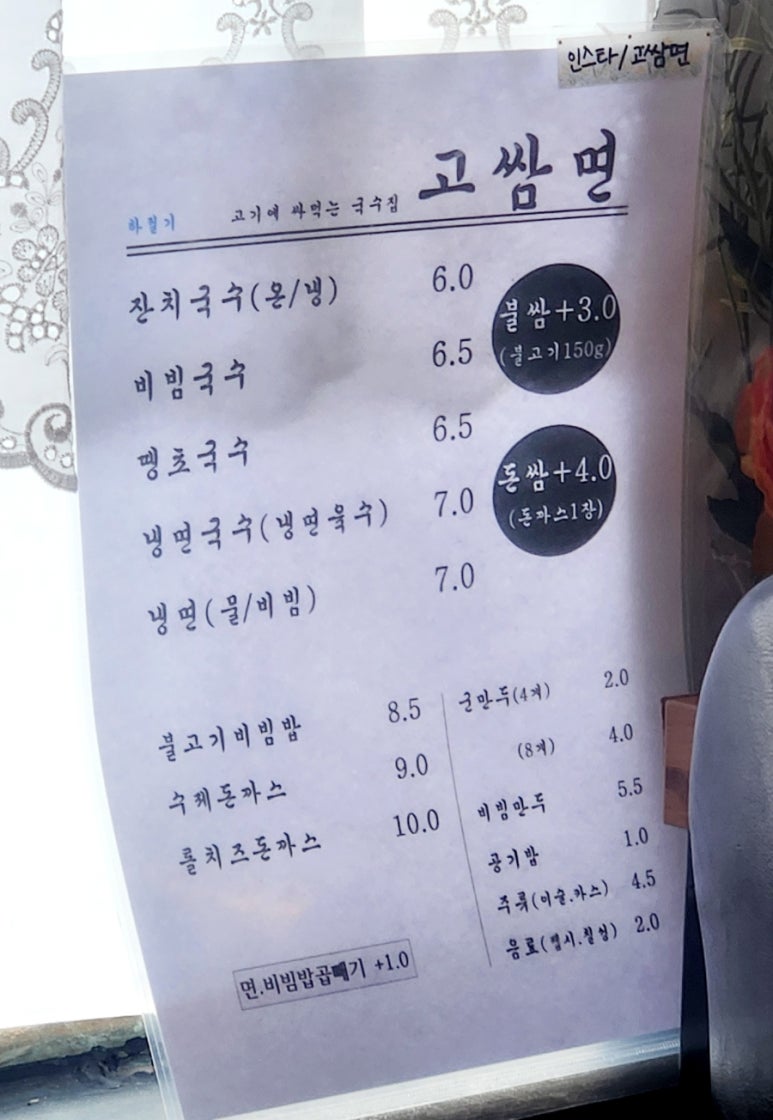 인스타/고쌈면
하월기 고기에 싸먹는 국수집 고쌈면
잔치국수(온/냉) 6.0
비빔국수 6.5
땡초국수 6.5
냉면국수(냉면육수) 7.0
냉면(물/비빔) 7.0
불쌈+3.0
(불고기150g)
돈쌈+4.0
(돈까스1장)
불고기비빔밥 8.5
수제돈까스 9.0
롤치즈돈까스 10.0
군만두(4개) 2.0
(8개) 4.0
비빔만두 5.5
공기밥 1.0
주류(이슬.카스) 4.5
음료(펩시.칠성) 2.0
면.비빔밥곱빼기 +1.0